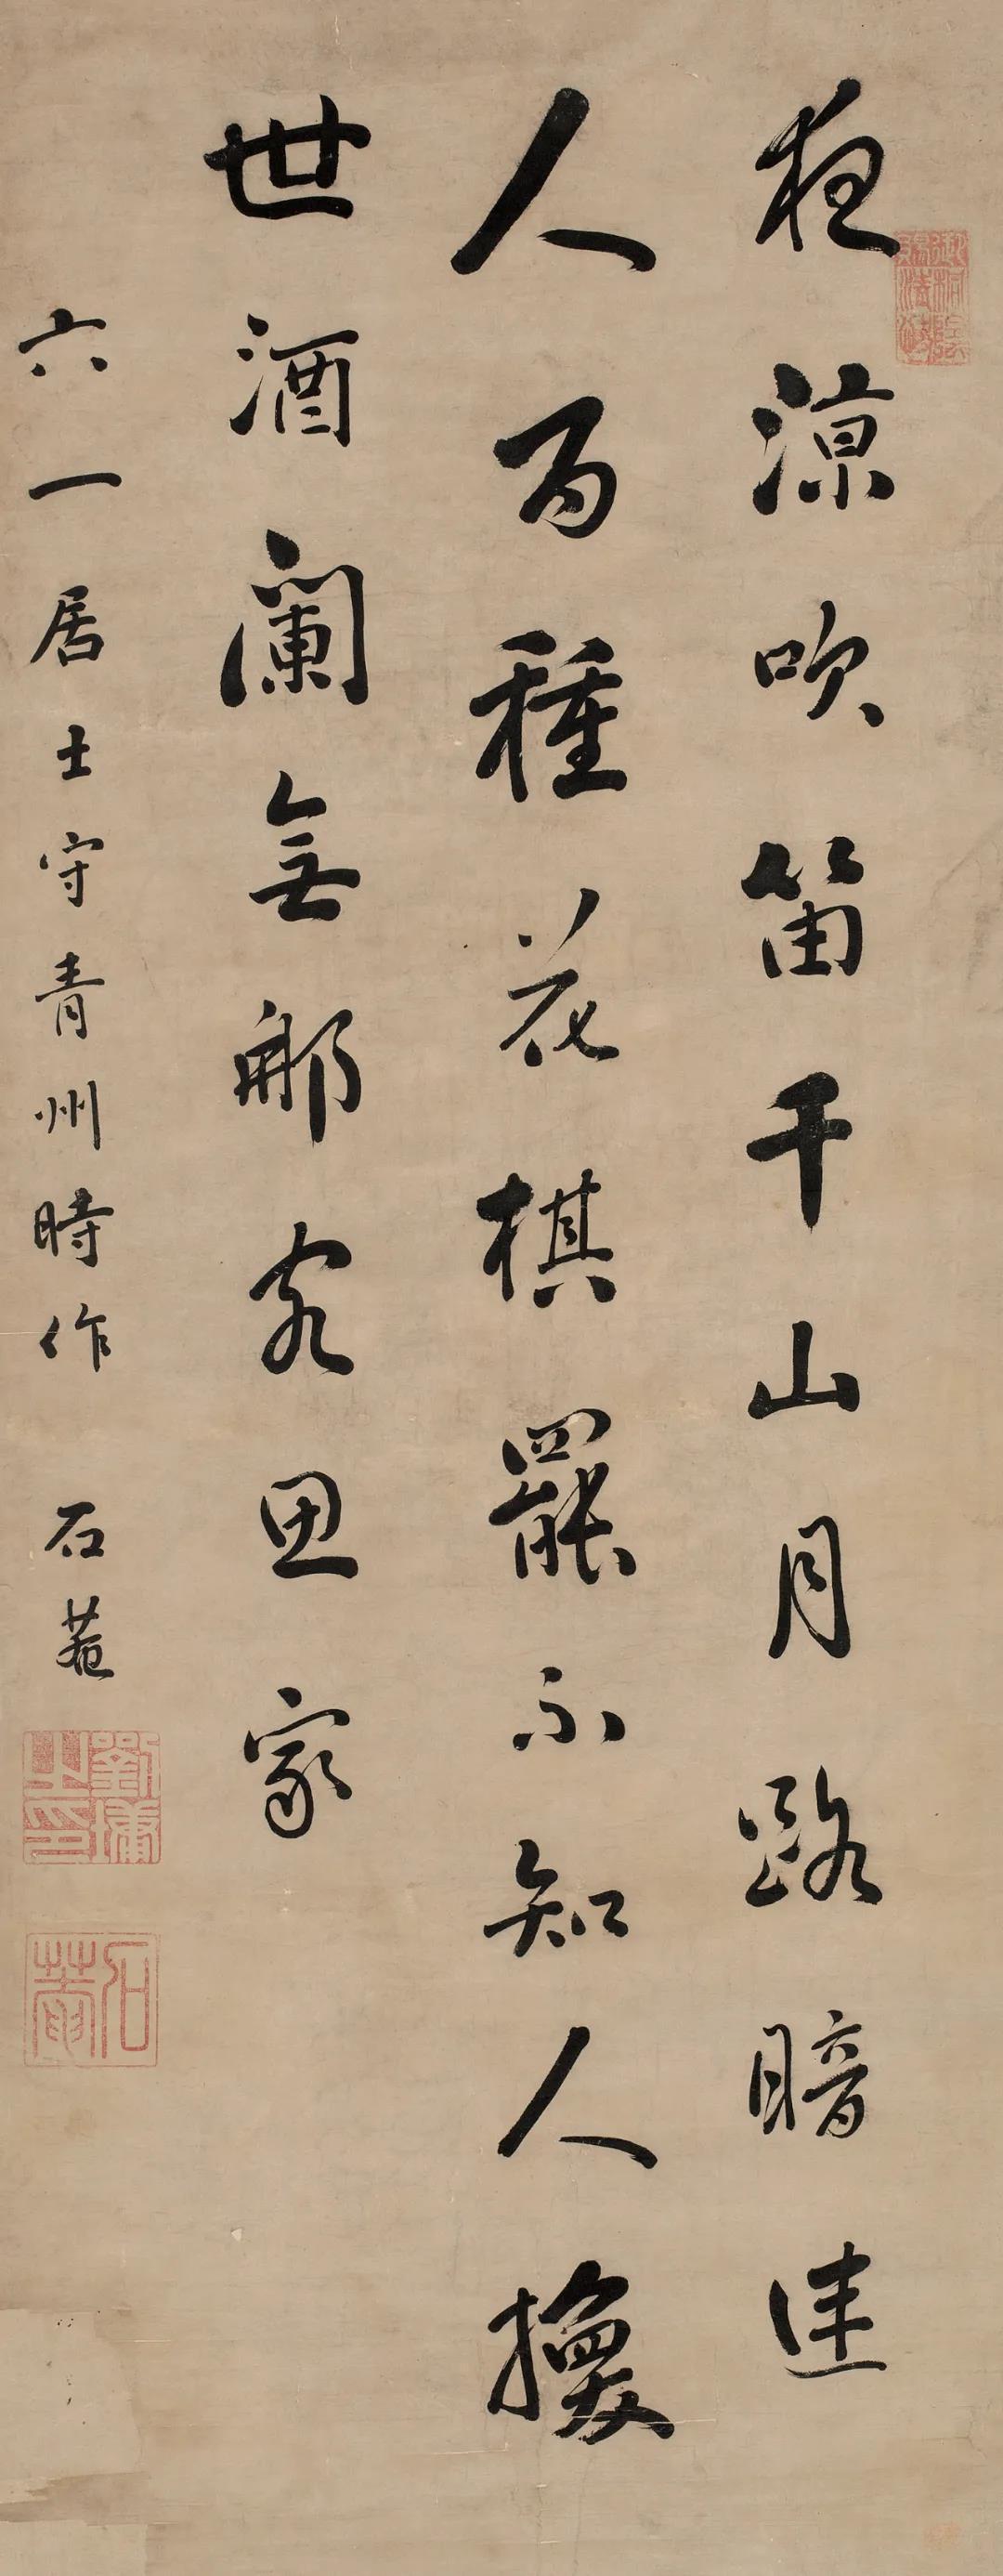 夜涼吹笛千山月路暗迷
人百種花棋罷不知人換
世酒闌無那客思家
六一居士守青州時作
石菴
劉墉之印
石菴